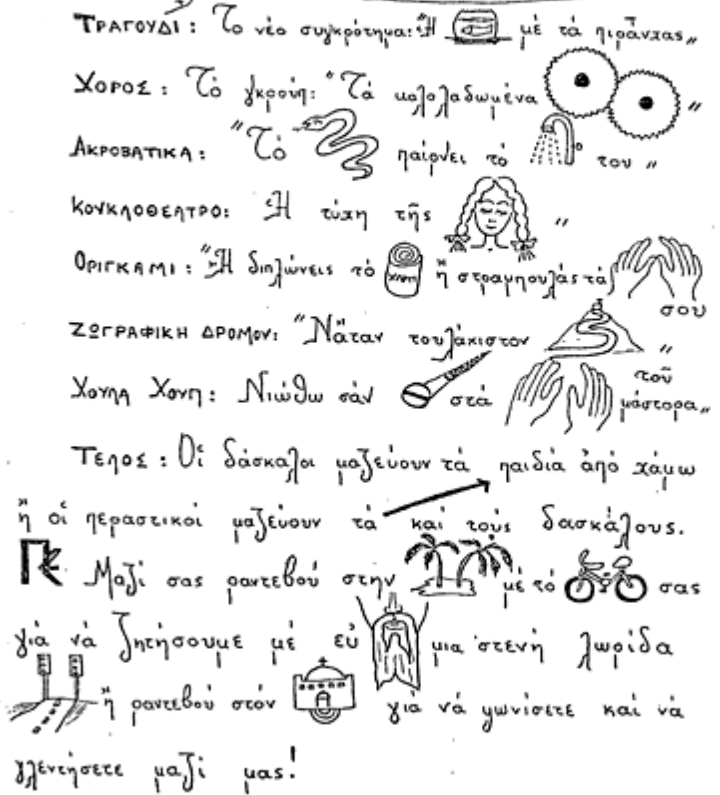 ΤΡΑΓΟΥΔΙ: Τὸ νέο συγκρότημα: "Ἡ μέ τά πιράνχας"
ΧΟΡΟΣ: Τό γκρούπ: "Τά καλολαδωμένα"
ΑΚΡΟΒΑΤΙΚΑ: "Τό παίρνει τό του"
ΚΟΥΚΛΟΘΕΑΤΡΟ: Ἡ τύχη τῆς "
ΟΡΙΓΚΑΜΙ: "Ἤ διπλώνεις τό ΧΑΡΤΙ ἤ στραμπουλάς τά σου
ΖΩΓΡΑΦΙΚΗ ΔΡΟΜΟΥ: "Νἄταν τουλάκιστον "
ΧΟΥΛΑ ΧΟΥΠ: Νιώθω σάν στά τοῦ μάστορα"
ΤΕΛΟΣ: Οἱ δάσκαλοι μαζεύουν τά παιδιά ἀπό χάμω
ἤ οἱ περαστικοί μαζεύουν τά καί τούς δασκάλους.
Μαζί σας ραντεβού στην μέ τό σας
γιά νά ζητήσουμε μέ εὐ μια στενή λωρίδα
ἤ ραντεβού στόν γιά νά ψωνίσετε καί νά
γλεντήσετε μαζί μας!